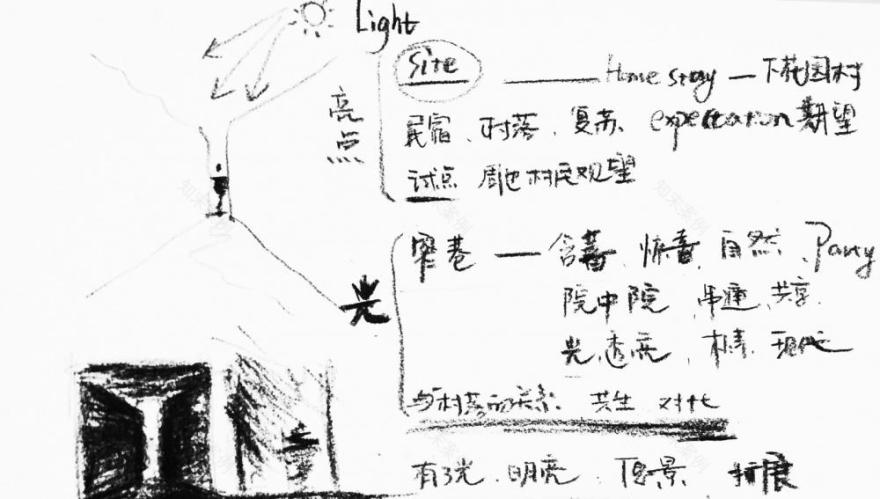 Light
亮点
Site —— Home stay — 下花园村
民宿、村落、复苏 expectation 期望
试点 周边村民观望
光
窄巷 — 含蓄、惊喜、自然、Party
院中院 串连 共享
光、透亮、
与村落的关系 共生 对比
有了光、明亮、 扩展